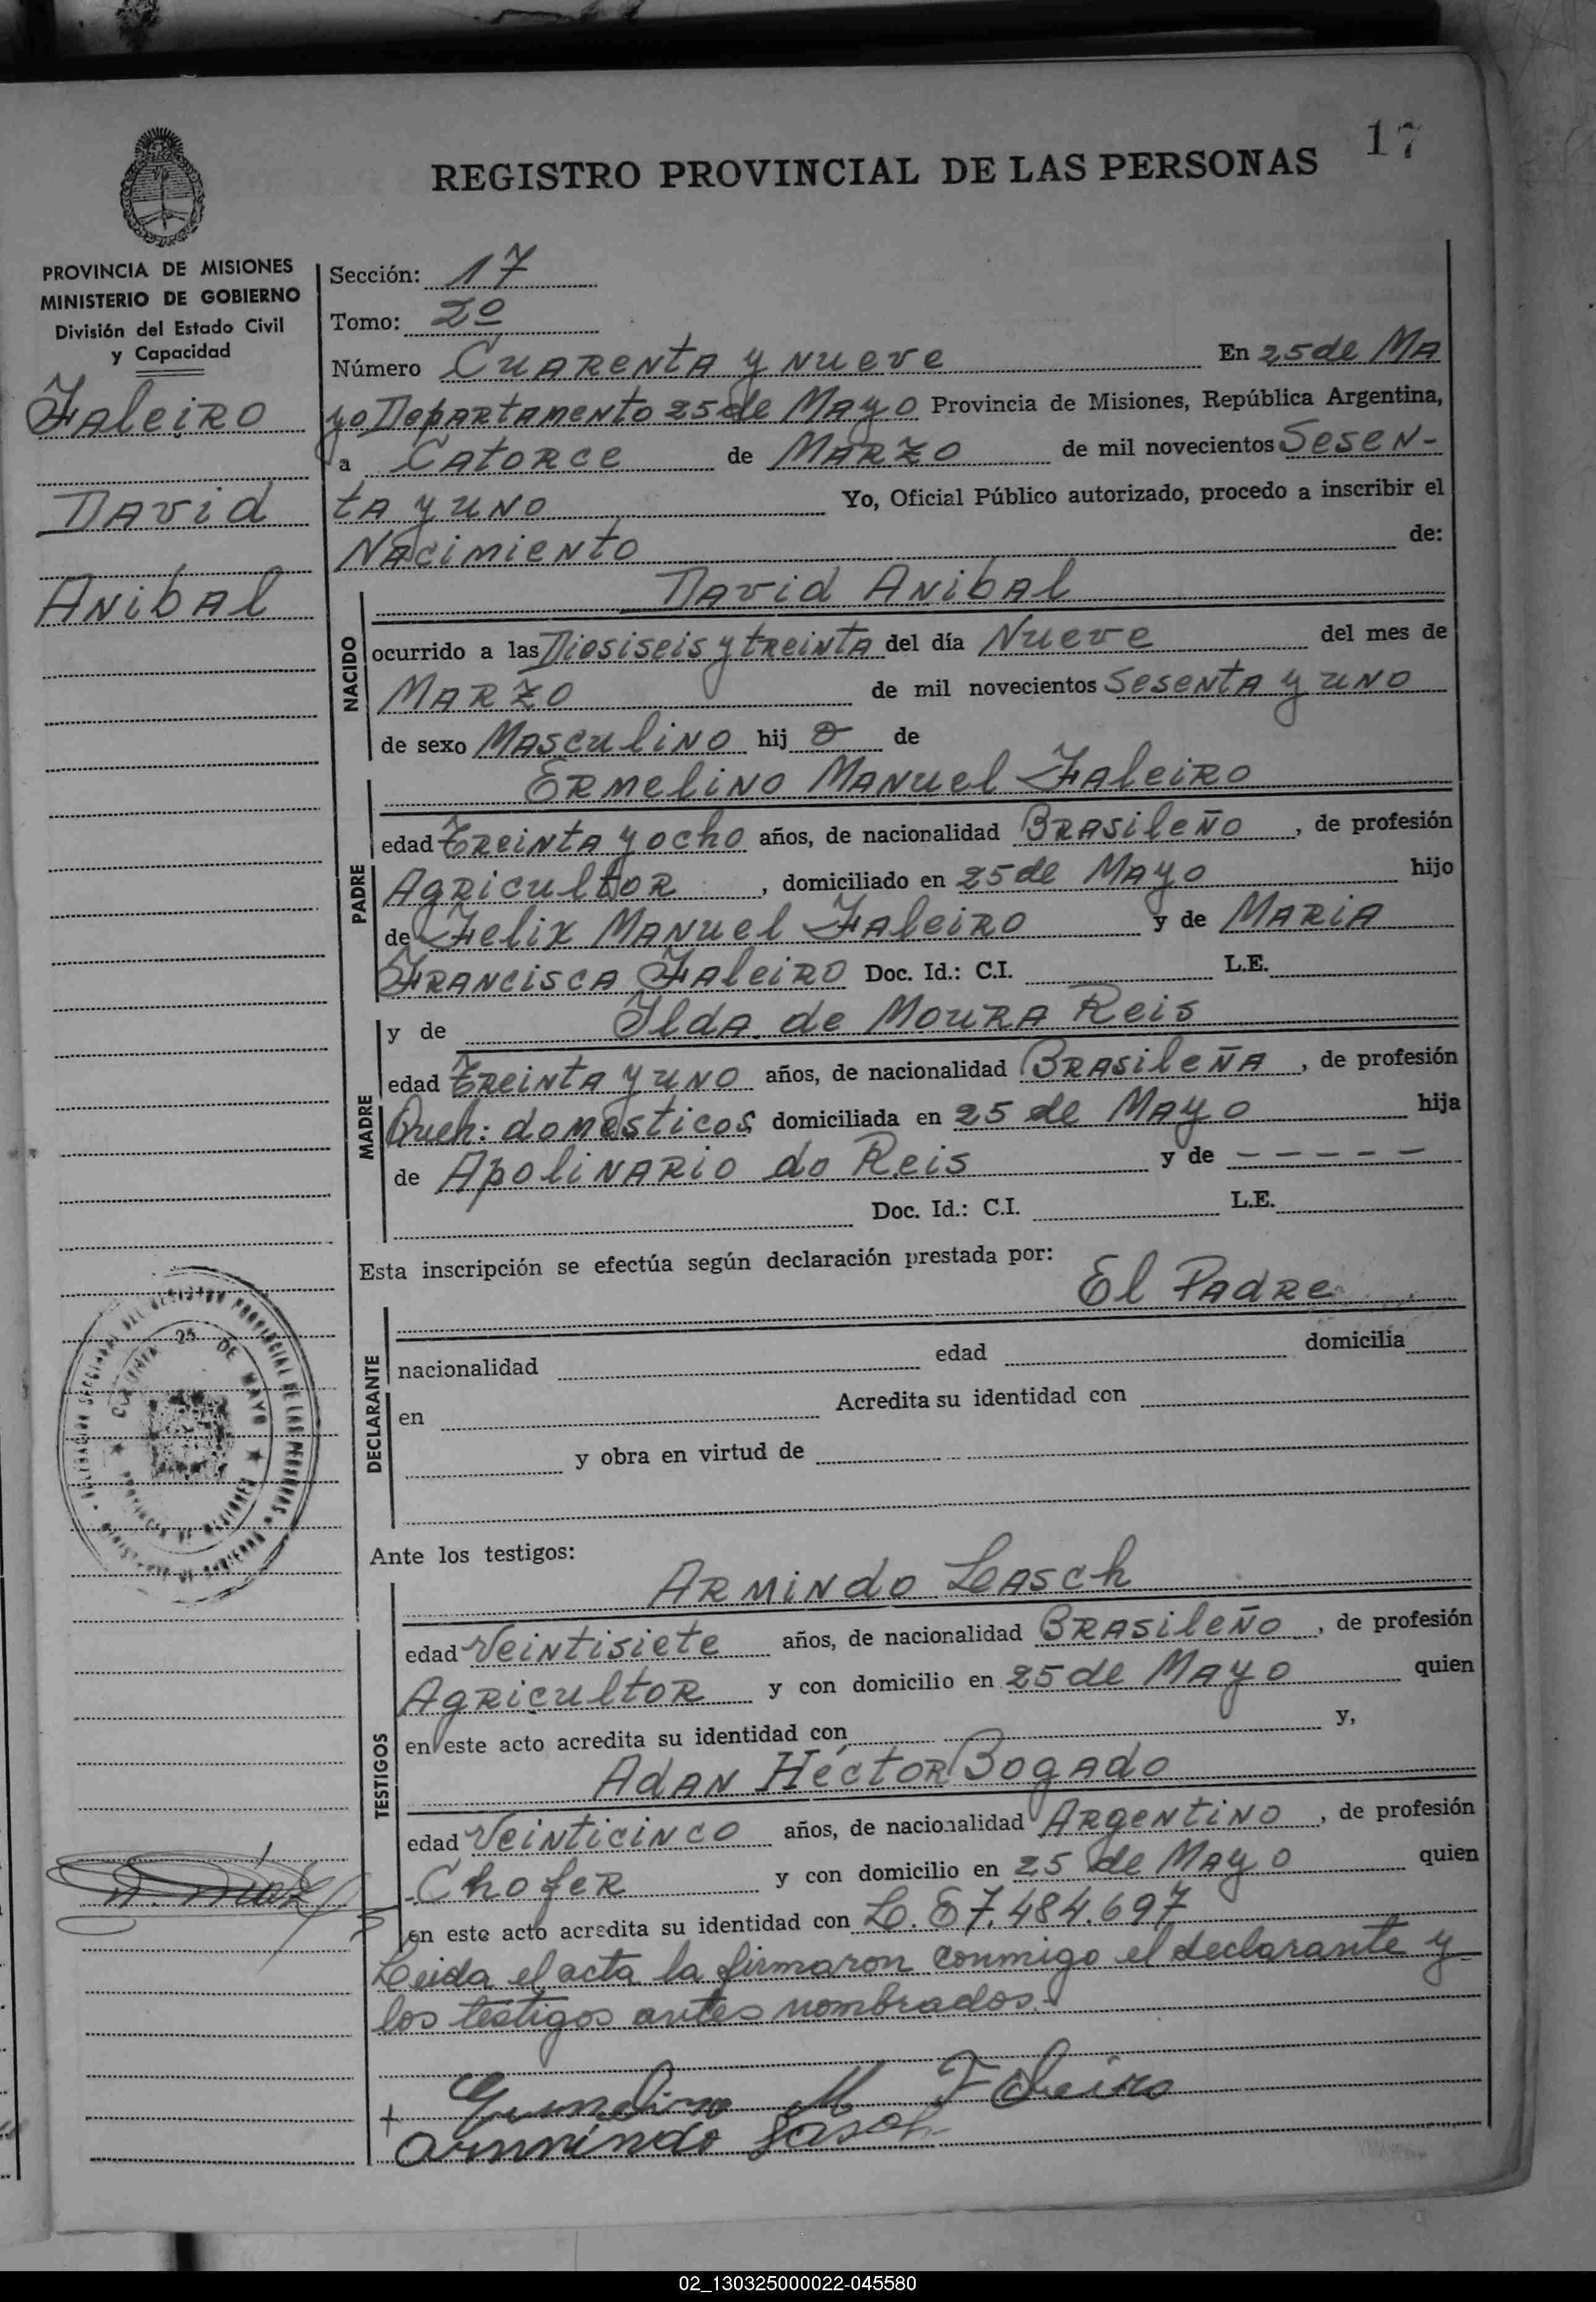 17
REGISTRO PROVINCIAL DE LAS PERSONAS
PROVINCIA DE MISIONES
MINISTERIO DE GOBIERNO
División del Estado Civil
y Capacidad
Faleiro
David
Anibal
Sección: 17
Tomo: 2º
Número Cuarenta y nueve En 25 de Ma
yo Departamento 25 de Mayo Provincia de Misiones, República Argentina,
a Catorce de Marzo de mil novecientos Sesen-
ta y uno Yo, Oficial Público autorizado, procedo a inscribir el
Nacimiento de:
David Anibal
NACIDO
ocurrido a las Diosiseis y treinta del día Nueve del mes de
Marzo de mil novecientos Sesenta y uno
de sexo Masculino hij o de
Ermelino Manuel Faleiro
PADRE
edad Treinta y ocho años, de nacionalidad Brasileño, de profesión
Agricultor, domiciliado en 25 de Mayo hijo
de Felix Manuel Faleiro y de Maria
Francisca Faleiro Doc. Id.: C.I. L.E.
y de Ilda de Moura Reis
MADRE
edad Treinta y uno años, de nacionalidad Brasileña, de profesión
Queh: domésticos domiciliada en 25 de Mayo hija
de Apolinario do Reis y de - - - - -
Doc. Id.: C.I. L.E.
Esta inscripción se efectúa según declaración prestada por:
El Padre
DECLARANTE
nacionalidad edad domicilia
en Acredita su identidad con
y obra en virtud de
Ante los testigos:
Armindo Lasch
TESTIGOS
edad Veintisiete años, de nacionalidad Brasileño, de profesión
Agricultor y con domicilio en 25 de Mayo quien
en este acto acredita su identidad con y,
Adan Héctor Bogado
edad Veinticinco años, de nacionalidad Argentino, de profesión
Chofer y con domicilio en 25 de Mayo quien
en este acto acredita su identidad con L. E 7.484.697
Leida el acta la firmaron conmigo el declarante y
los testigos antes nombrados.
M Faleiro
Armindo Lasch
COLONIA 25 DE MAYO
PROVINCIA DE MISIONES
02_130325000022-045580